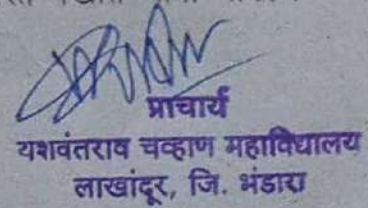 प्राचार्य
यशवंतराव चव्हाण महाविद्यालय
लाखांदूर, जि. भंडारा